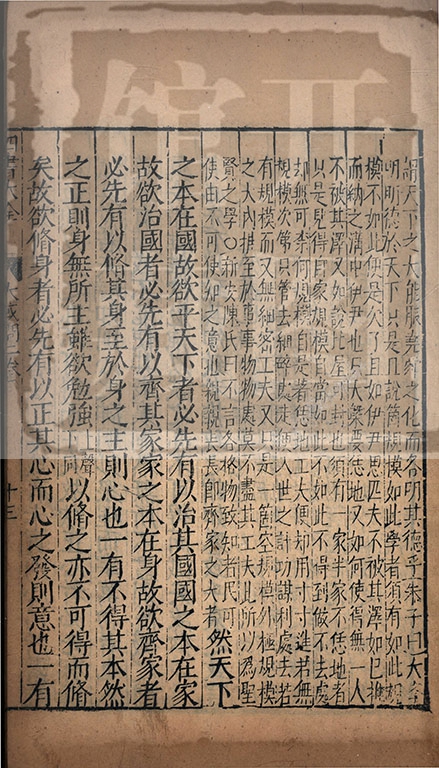 謂天下之大能服堯舜之化而各明其德乎朱子曰大學
明明德於天下只是且說箇規模如此學者須有如此規
模不如此便是欠了且如伊尹思匹夫不被其澤如己推
而納之溝中伊尹也只大槩要恁地又如何使得無一人
不被其澤又如說比屋可封也須有一家半家不恁地者
只是見得自家規模自當如此不如此不得到做不去處
却無可奈何規模自是著恁地工夫便却用寸寸進若無
規模次第只管去細碎處走便入世之計功謀利處去若
有規模而又無細密工夫又只是一箇空規模外極規模
之大內推至於事事物物處莫不盡其工夫此所以為聖
賢之學○新安陳氏曰不言各格物致知者民可
使由不可使知之意也親親長長即齊家之大者
然天下
之本在國故欲平天下者必先有以治其國國之本在家
故欲治國者必先有以齊其家家之本在身故欲齊家者
必先有以脩其身至於身之主則心也一有不得其本然
之正則身無所主雖欲勉強上聲下同以脩之亦不可得而脩
矣故欲脩身者必先有以正其心而心之發則意也一有
四書大全
十三